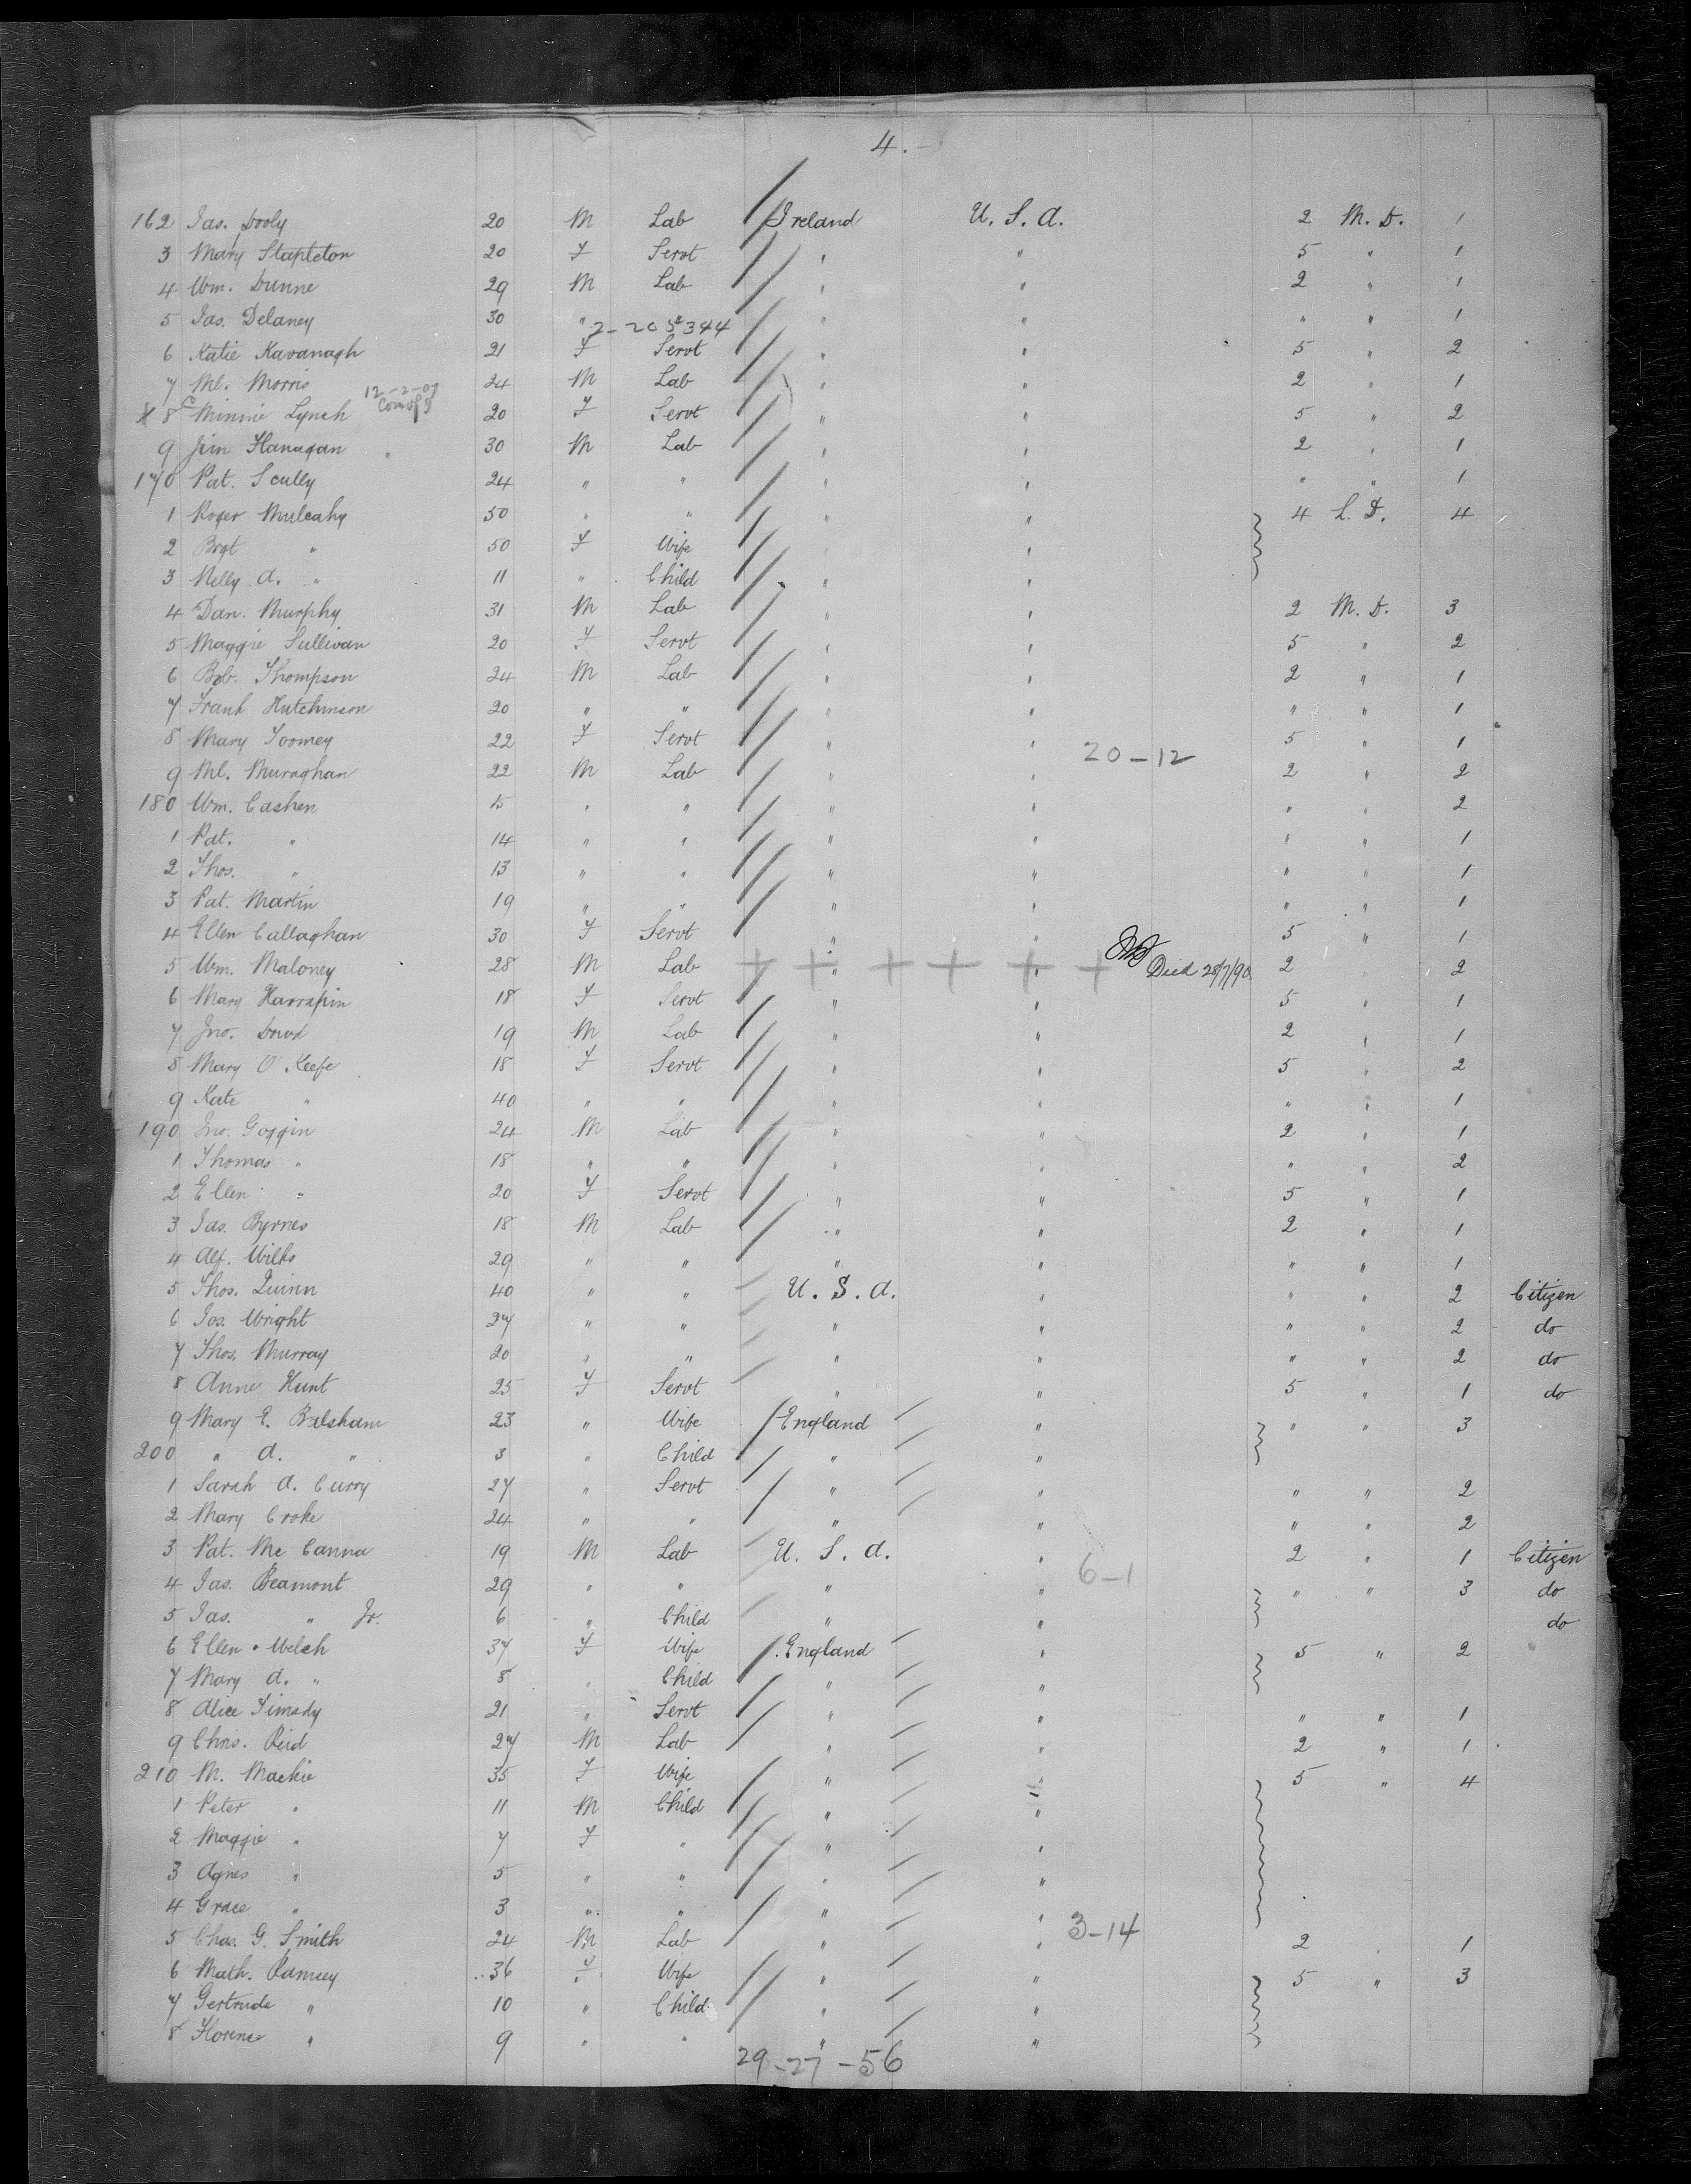 4.
162 Jas. Dooly 20 M Lab Ireland U. S. A. 2 M. D. 1
3 Mary Stapleton 20 F Servt " " 5 " 1
4 Wm. Dunne 29 M Lab " " 2 " 1
5 Jas. Delaney 30 " " " " " 1
2-20 344
6 Katie Kavanagh 21 F Servt " " 5 " 2
7 Ml. Morris 24 M Lab " " 2 " 1
12-2-09
X 8 C Minnie Lynch 20 F Servt " " 5 " 2
9 Jim Flanagan 30 M Lab " " 2 " 1
170 Pat. Scully 24 " " " " " " 1
1 Roger Mulcahy 50 " " " " 4 L. D. 4
2 Brgt " 50 F Wife " "
3 Nelly A. " 11 " Child " "
4 Dan. Murphy 31 M Lab " " 2 M. D. 3
5 Maggie Sullivan 20 F Servt " " 5 " 2
6 Bob. Thompson 24 M Lab " " 2 " 1
7 Frank Hutchinson 20 " " " " " " 1
8 Mary Toomey 22 F Servt " " 5 " 1
20-12
9 Ml. Muraghan 22 M Lab " " 2 " 2
180 Wm. Cashen 15 " " " " " " 2
1 Pat. " 14 " " " " " " 1
2 Thos. " 13 " " " " " " 1
3 Pat. Martin 19 " " " " " " 1
4 Ellen Callaghan 30 F Servt " " 5 " 1
5 Wm. Maloney 28 M Lab + + " + + + " + Died 28/7/90 2 2
6 Mary Harrapin 18 F Servt " " 5 " 1
7 Jno. Dowd 19 M Lab " " 2 " 1
8 Mary O'Keefe 18 F Servt " " 5 " 2
9 Kate " 40 " " " " " " 1
190 Jno. Goggin 24 M Lab " " 2 " 1
1 Thomas " 18 " " " " " " 2
2 Ellen " 20 F Servt " " 5 " 1
3 Jas. Byrnes 18 M Lab " " 2 " 1
4 Alf. Wilks 29 " " " " " " 1
5 Thos. Quinn 40 " " U. S. A. " " " 2 Citizen
6 Jos. Wright 27 " " " " " " 2 do
7 Thos. Murray 20 " " " " " " 2 do
8 Anne Hunt 25 F Servt " " 5 " 1 do
9 Mary E. Balsham 23 " Wife England " " " 3
200 " A. " 3 " Child " "
1 Sarah A. Curry 27 " Servt " " " " 2
2 Mary Croke 24 " " " " " " 2
3 Pat. Mc Canna 19 M Lab U. S. A. " 2 " 1 Citizen
6-1
4 Jas. Beamont 29 " " " " " " 3 do
5 Jas. " Jr. 6 " Child " " do
6 Ellen Welch 37 F Wife England " 5 " 2
7 Mary A. " 8 " Child " "
8 Alice 21 " Servt " " " " 1
9 Chris. Reid 27 M Lab " " 2 " 1
210 M. Mackie 35 F Wife " " 5 " 4
1 Peter " 11 M Child " "
2 Maggie " 7 F " " "
3 Agnes " 5 " " " "
4 Grace " 3 " " " "
3-14
5 Chas. G. Smith 24 M Lab " " 2 " 1
6 Math. Ramsey 36 F Wife " " 5 " 3
7 Gertrude " 10 " Child " "
8 Florence " 9 " " " "
29-27-56